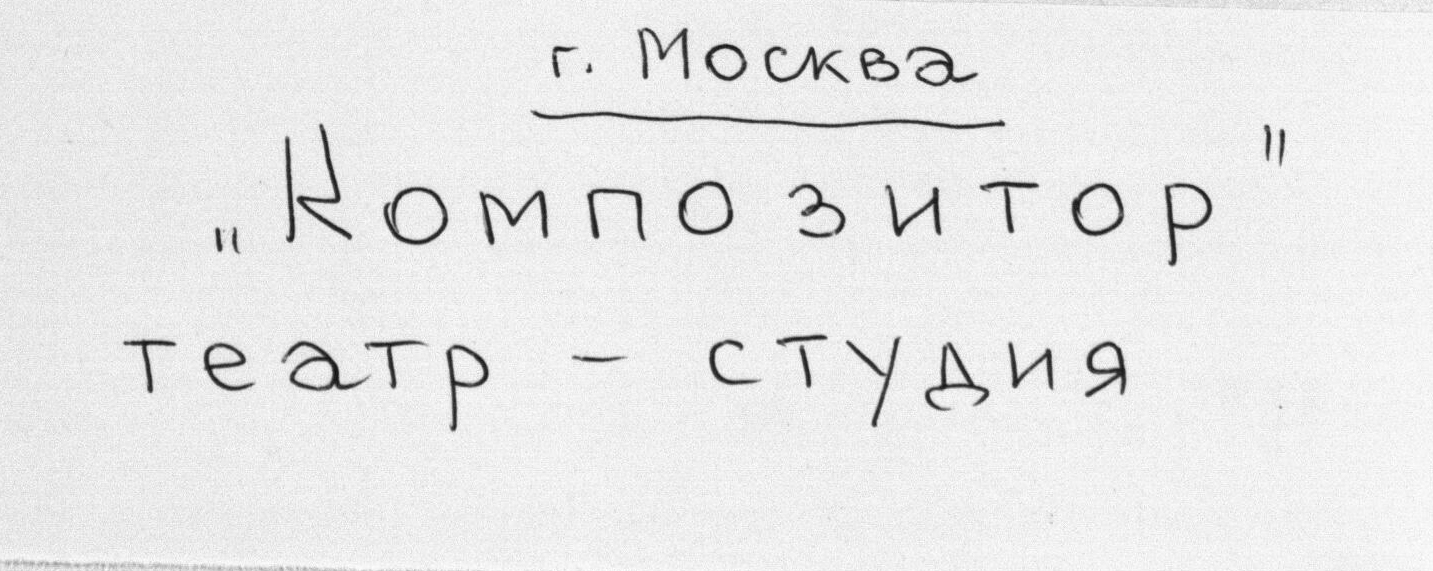 г. Москва
„Композитор"
театр - студия